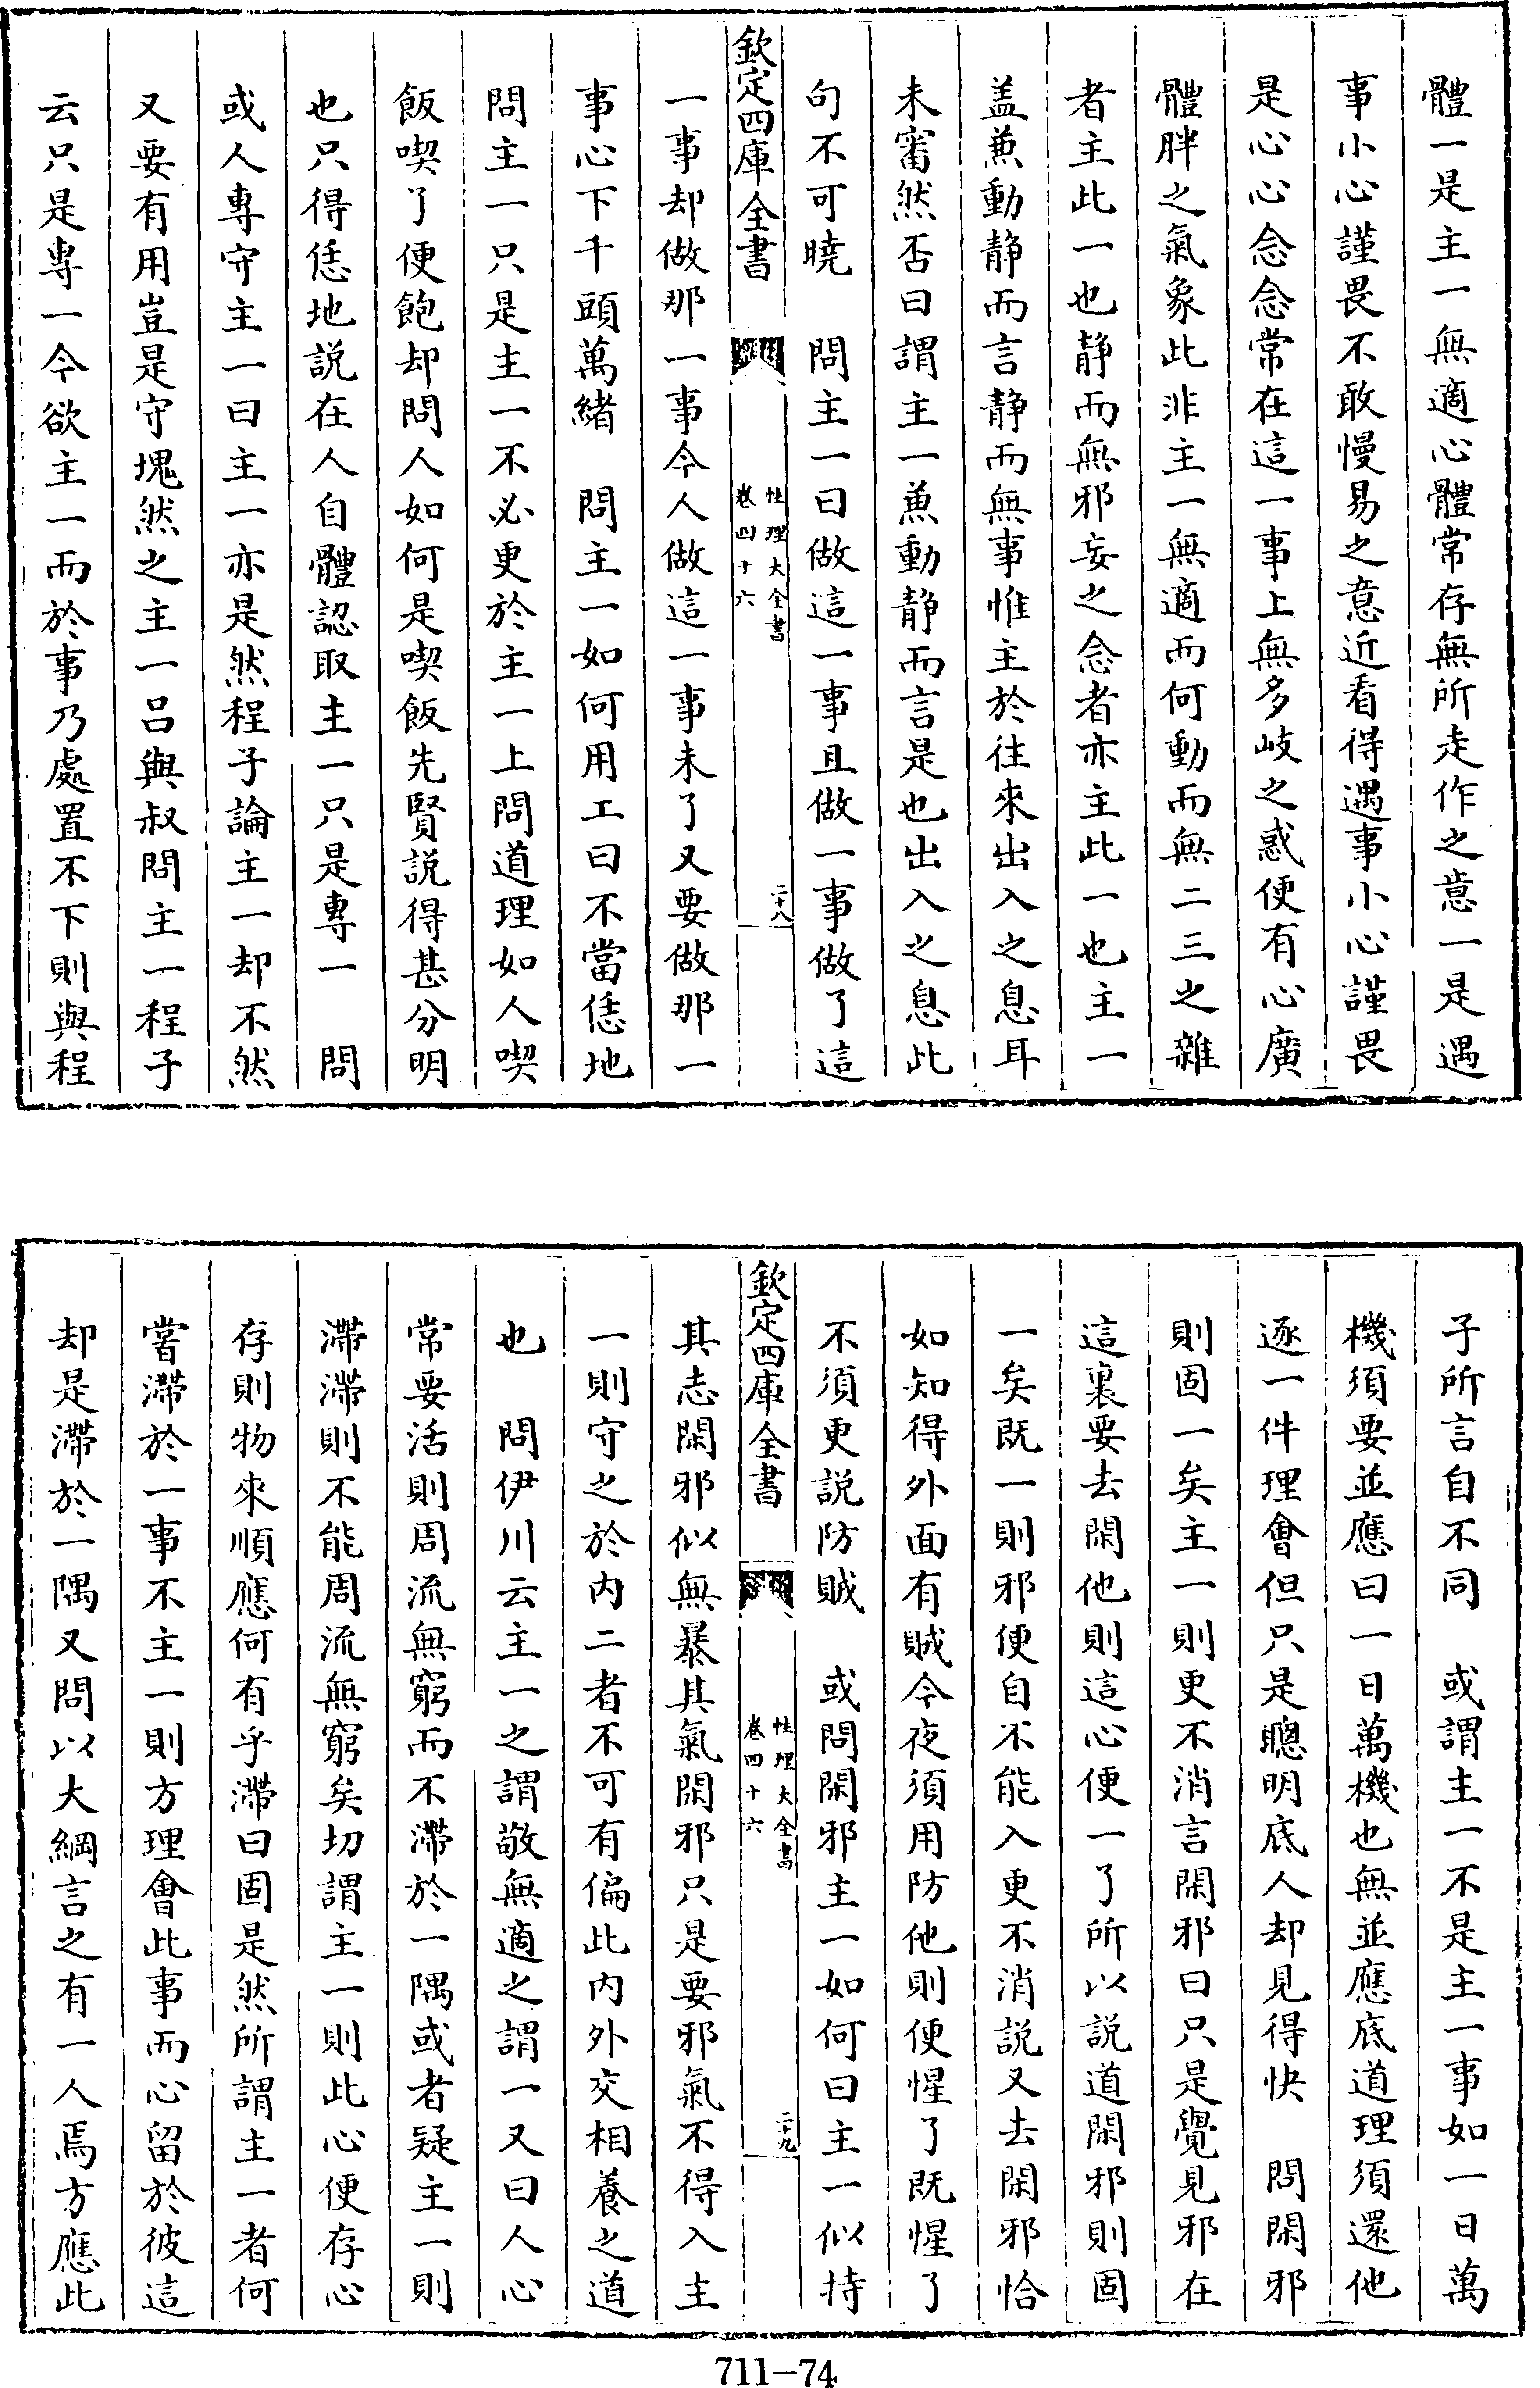 體一是主一無適心體常存無所走作之意一是遇
事小心謹畏不敢慢易之意近看得遇事小心謹畏
是心心念念常在這一事上無多岐之惑便有心廣
體胖之氣象此非主一無適而何動而無二三之雜
者主此一也静而無邪妄之念者亦主此一也主一
盖兼動静而言静而無事惟主於往來出入之息耳
未審然否曰謂主一兼動静而言是也出入之息此
句不可曉　問主一曰做這一事且做一事做了這
欽定四庫全書
性理大全書
卷四十六
二十八
一事却做那一事今人做這一事未了又要做那一
事心下千頭萬緒　問主一如何用工曰不當恁地
問主一只是主一不必更於主一上問道理如人喫
飯喫了便飽却問人如何是喫飯先賢説得甚分明
也只得恁地説在人自體認取主一只是專一　問
或人專守主一曰主一亦是然程子論主一却不然
又要有用豈是守塊然之主一吕與叔問主一程子
云只是專一今欲主一而於事乃處置不下則與程
子所言自不同　或謂主一不是主一事如一日萬
機須要並應曰一日萬機也無並應底道理須還他
逐一件理會但只是聰明底人却見得快　問閑邪
則固一矣主一則更不消言閑邪曰只是覺見邪在
這裏要去閑他則這心便一了所以説道閑邪則固
一矣既一則邪便自不能入更不消説又去閑邪恰
如知得外面有賊今夜須用防他則便惺了既惺了
不須更説防賊　或問閑邪主一如何曰主一似持
欽定四庫全書
性理大全書
卷四十六
二十九
其志閑邪似無暴其氣閑邪只是要邪氣不得入主
一則守之於内二者不可有偏此内外交相養之道
也　問伊川云主一之謂敬無適之謂一又曰人心
常要活則周流無窮而不滯於一隅或者疑主一則
滯滯則不能周流無窮矣切謂主一則此心便存心
存則物來順應何有乎滯曰固是然所謂主一者何
嘗滯於一事不主一則方理會此事而心留於彼這
却是滯於一隅又問以大綱言之有一人焉方應此
711-74